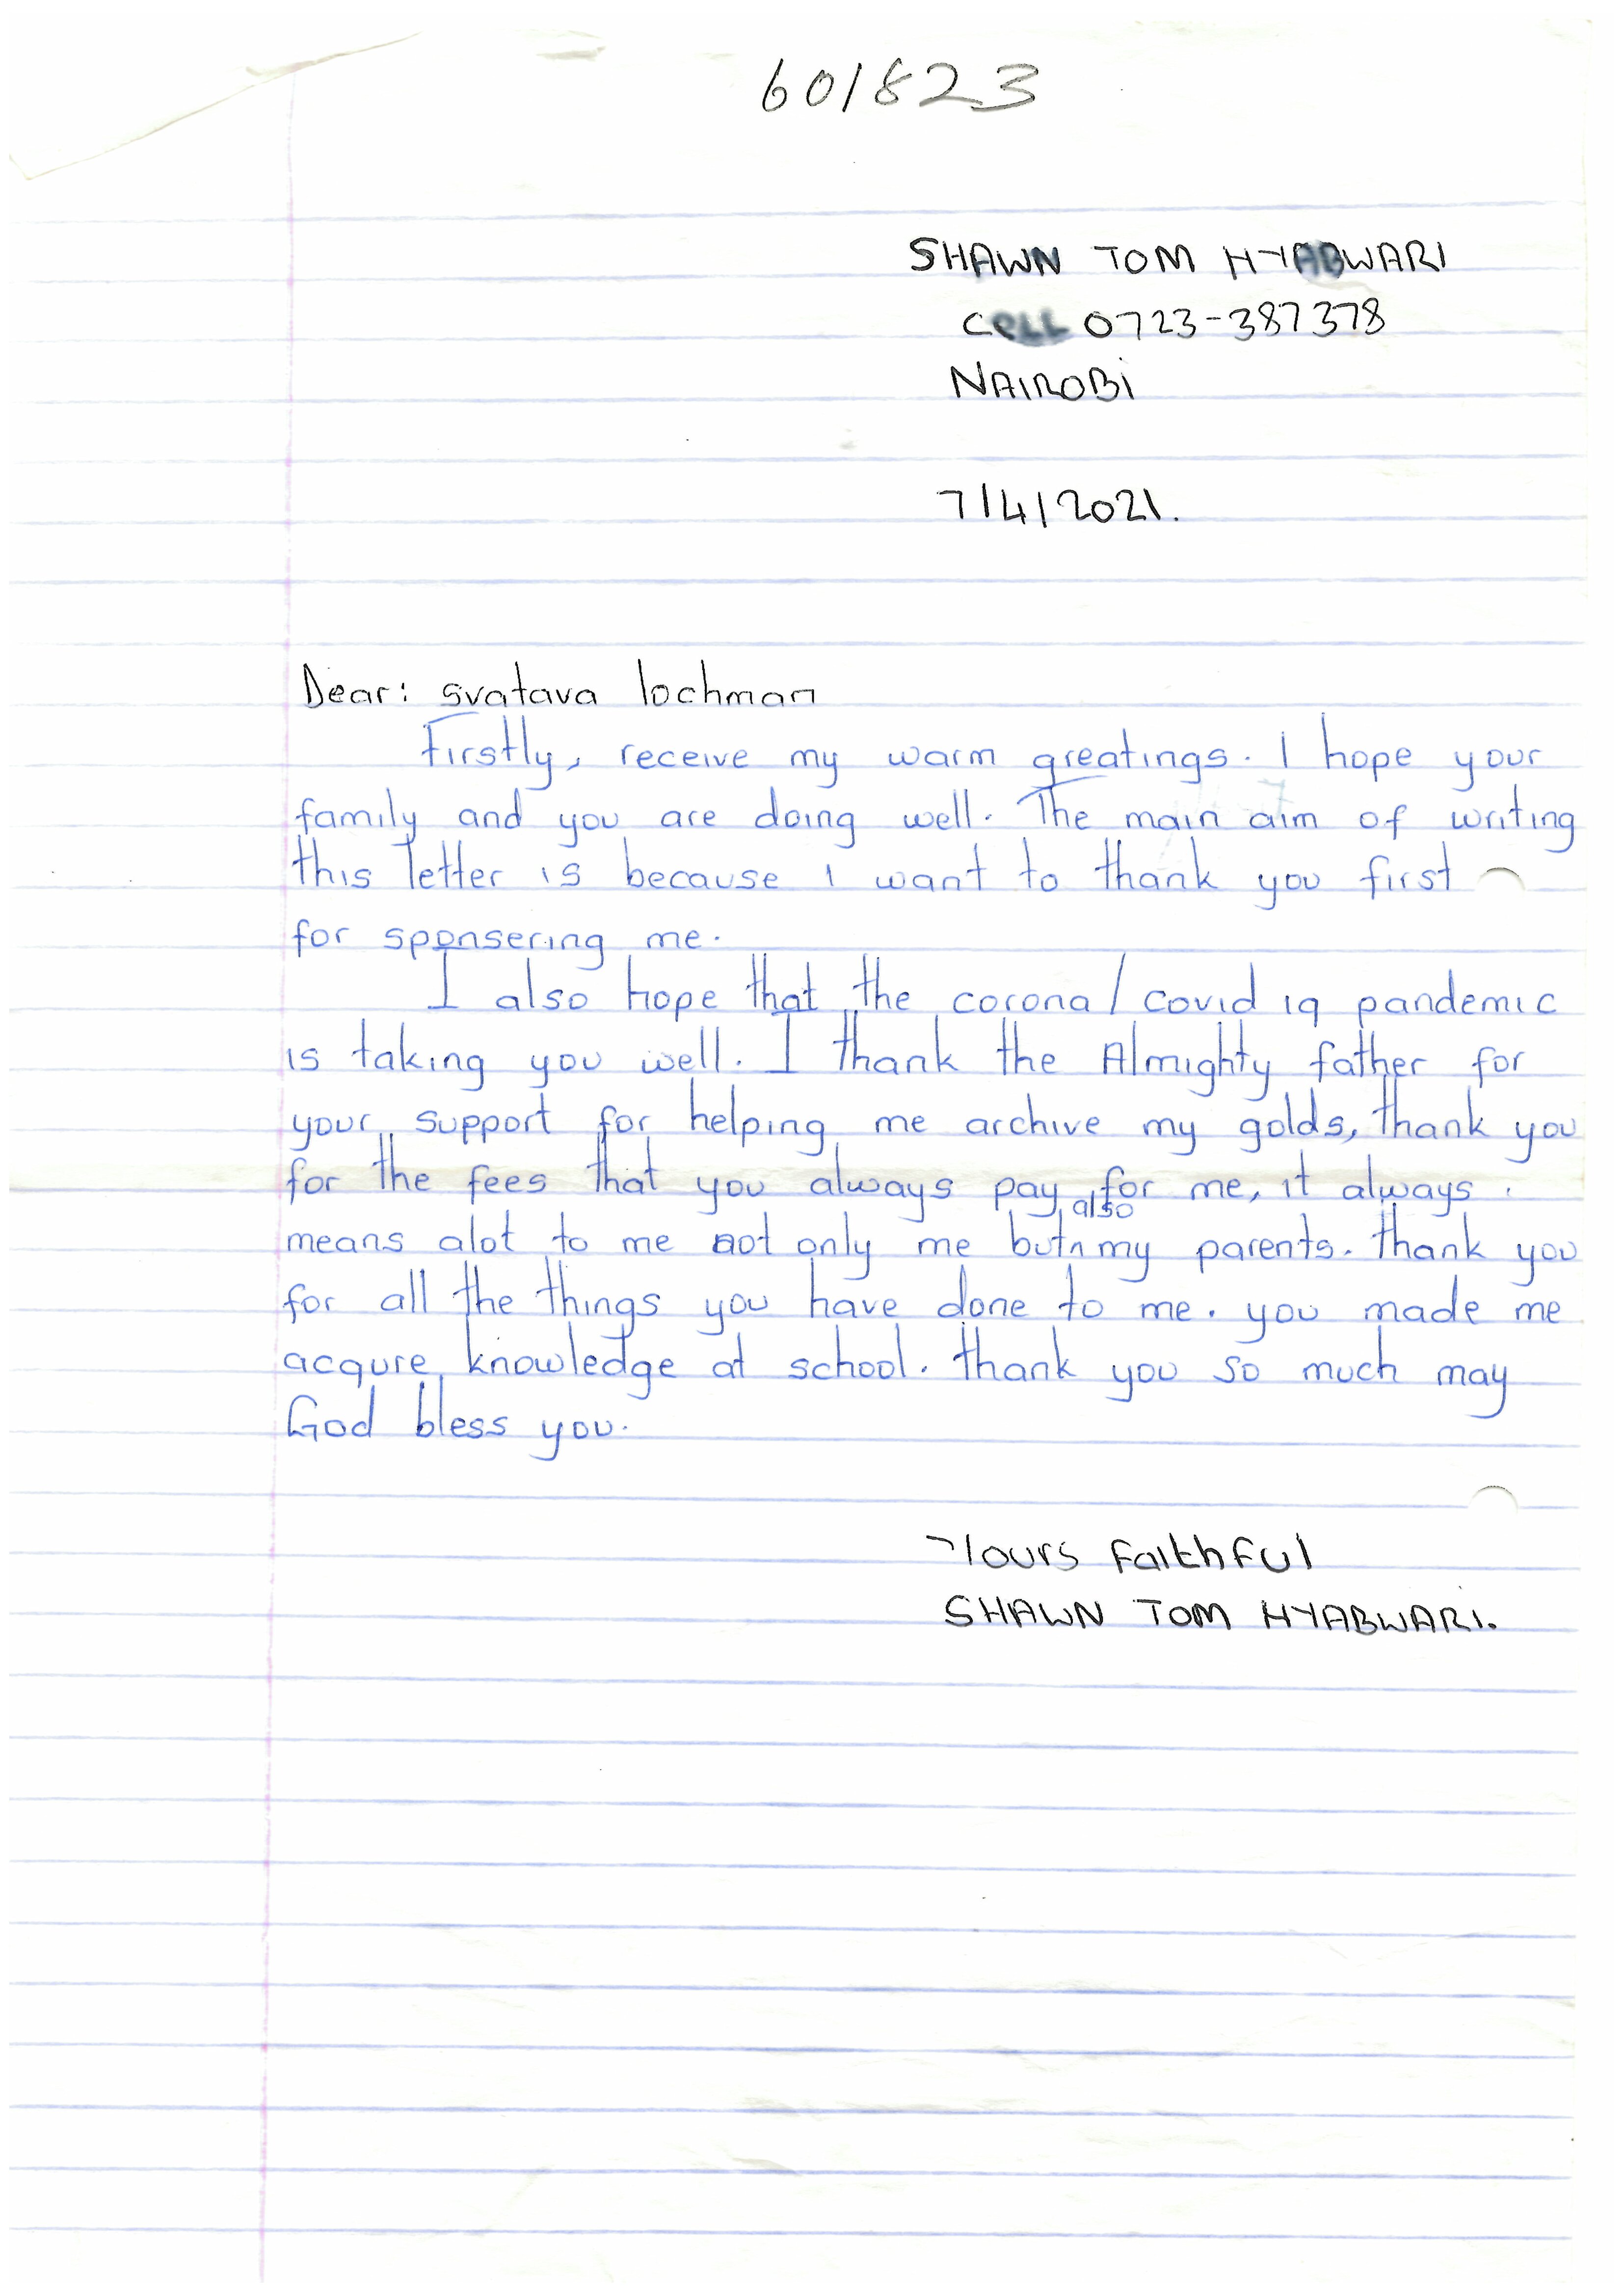 601823
SHAWN TOM NYABWARI
CELL 0723-387378
NAIROBI
7/4/2021.
Dear: svatava lochman
Firstly, receive my warm greatings. I hope your
family and you are doing well. The main aim of writing
this letter is because I want to thank you first
for sponsering me.
I also hope that the corona/covid 19 pandemic
is taking you well. I thank the Almighty father for
your support for helping me archive my golds, thank you
for the fees that you always pay for me, it always
means alot to me not only me but also my parents. thank you
for all the things you have done to me. you made me
acqure knowledge at school. thank you so much may
God bless you.
Yours Faithful
SHAWN TOM NYABWARI.